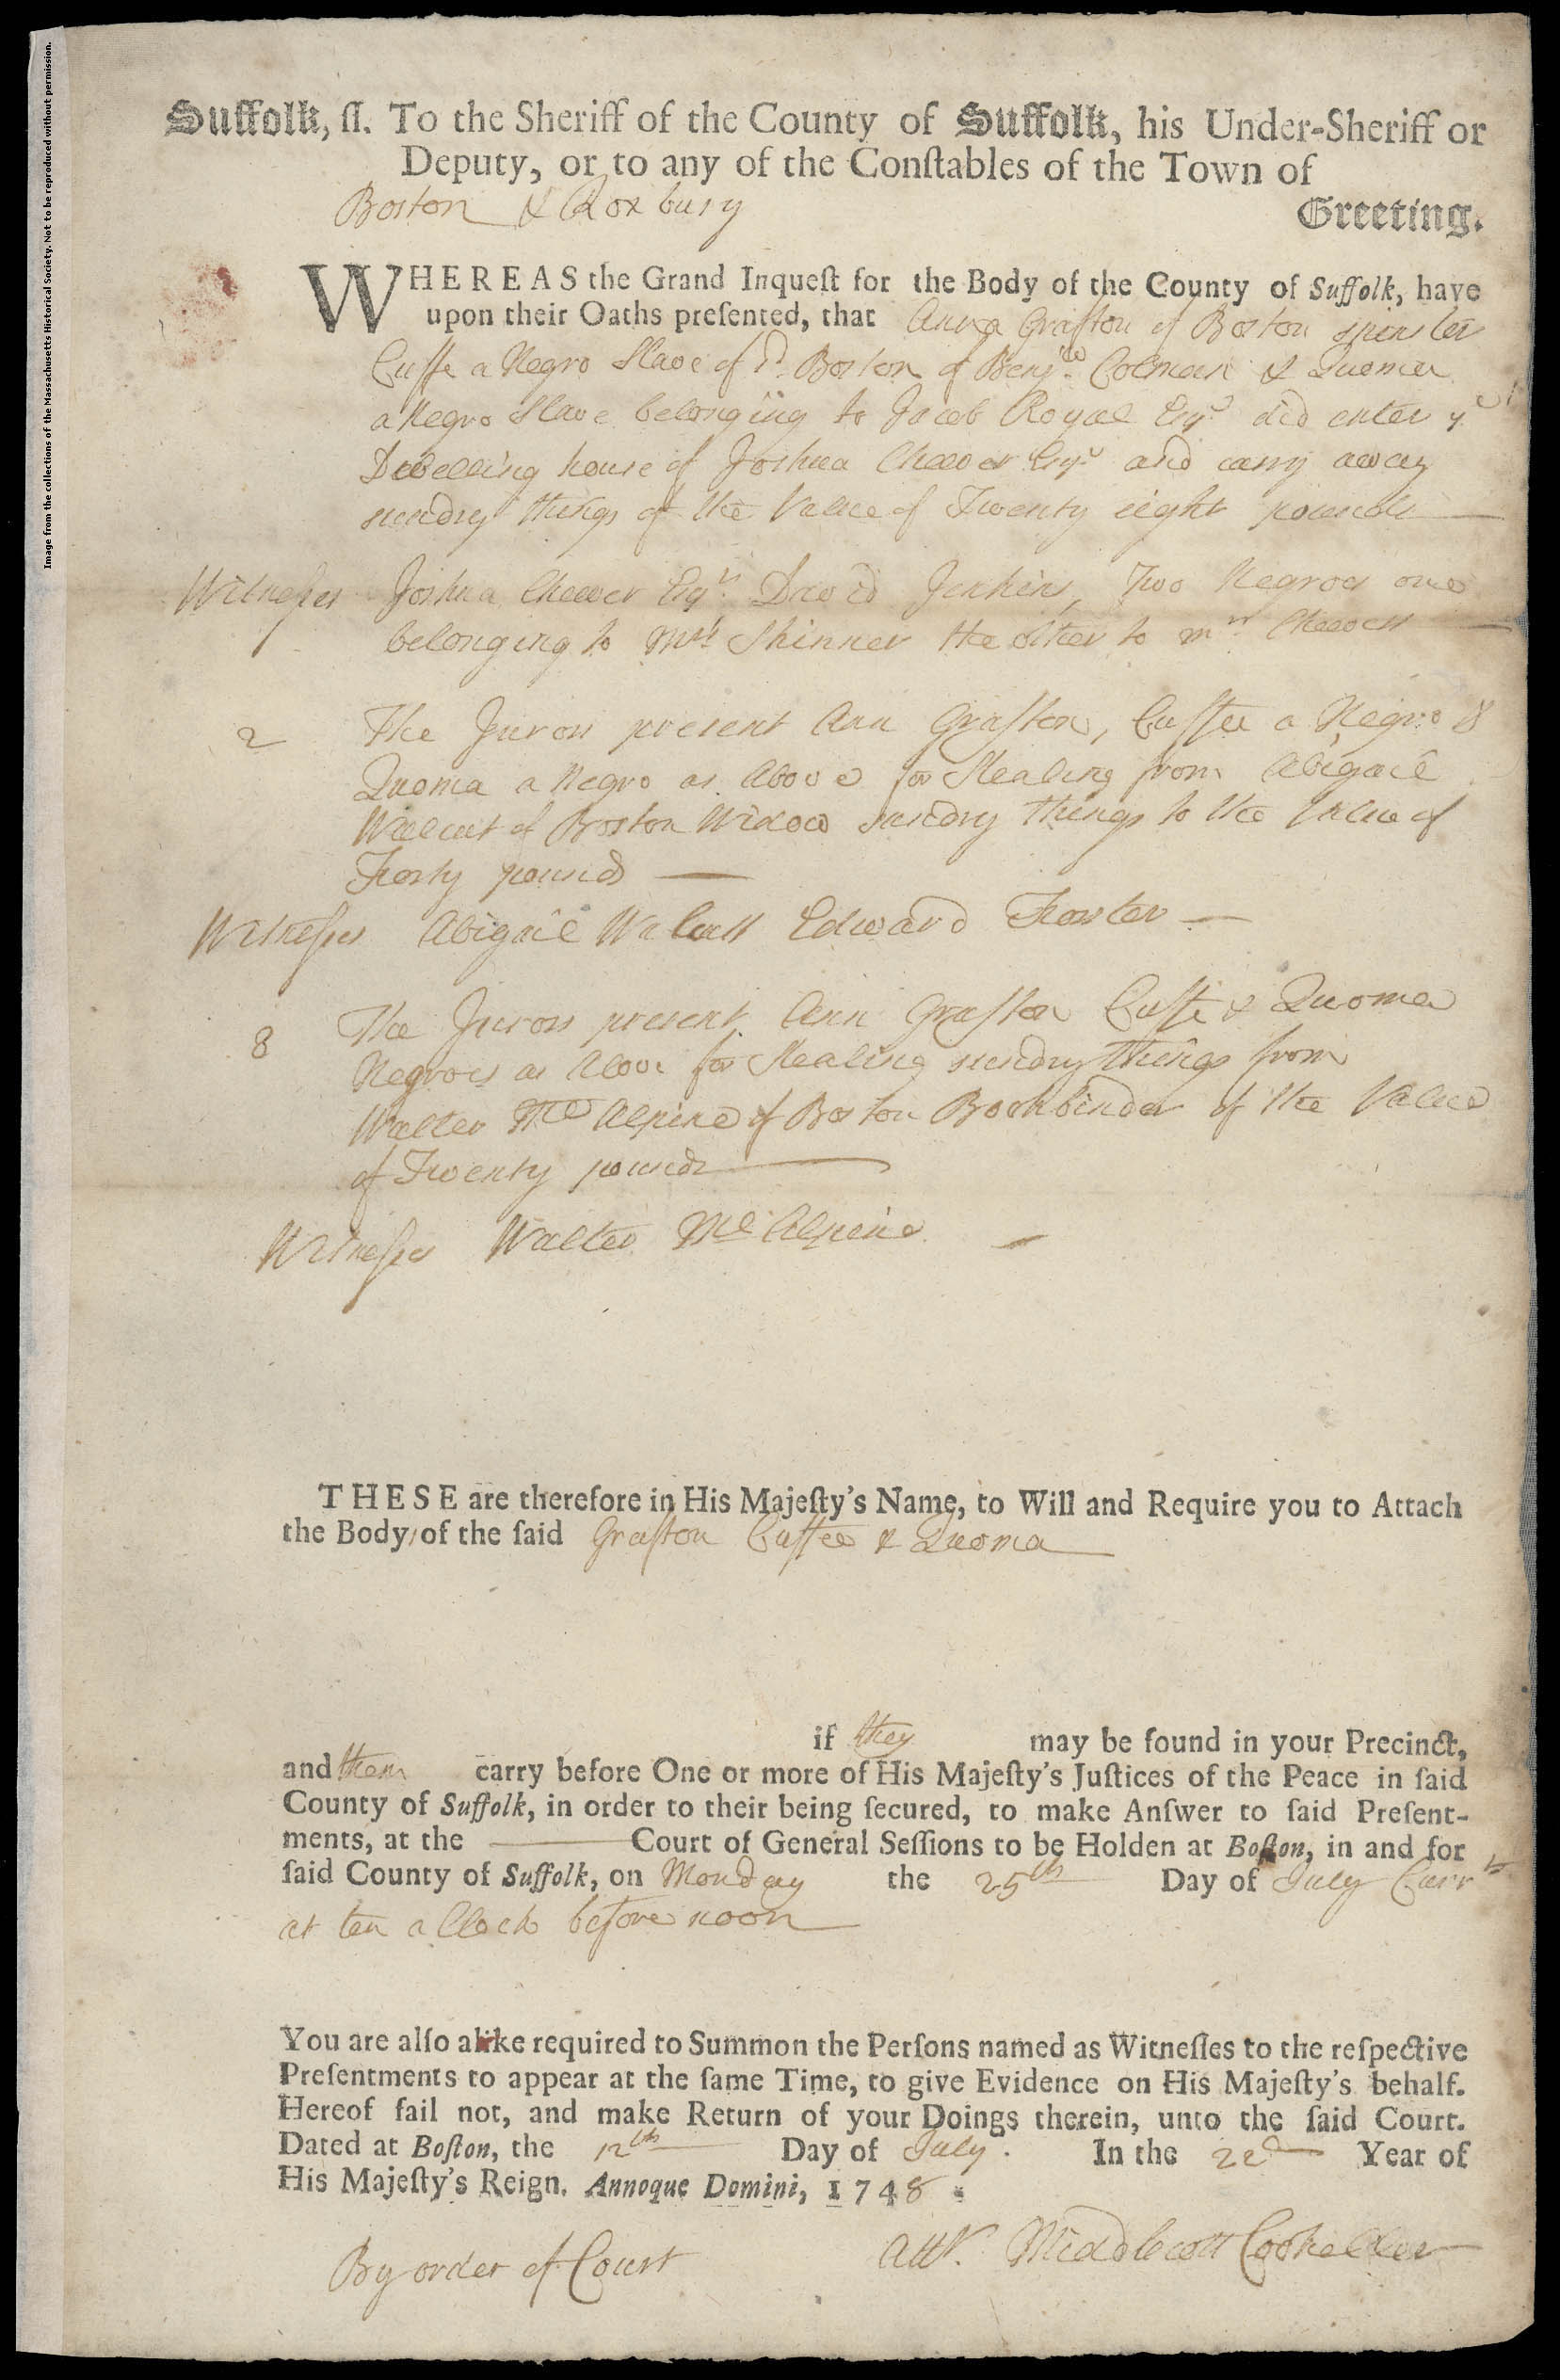 Image from the collections of the Massachusetts Historical Society. Not to be reproduced without permission.
Suffolk, ſſ. To the Sheriff of the County of Suffolk, his Under-Sheriff or
Deputy, or to any of the Conſtables of the Town of
Boston & Roxbury
Greeting.
WHEREAS the Grand Inqueſt for the Body of the County of Suffolk, have
upon their Oaths preſented, that Anna Grafton of Boston spinster
Cuffe a Negro Slave of sd. Boston of Benja. Colman & Quoma
a Negro Slave belonging to Jacob Royal Esqr. did enter ye
Dwelling house of Joshua Cheever Esqr and carry away
sundry things of the Value of Twenty eight pounds
Witneſses Joshua Cheever Esqr. David Jenkins, Two Negroes one
belonging to Mrs. Skinner the other to mr. Cheever
2 The Jurors present Ann Grafton, Cuffee a Negro &
Quoma a Negro as Above for Stealing from Abigail
Walcut of Boston Widow sundry things to the Value of
Forty pounds
Witneſses Abigail Walcutt Edward Foster
3 The Jurors present Ann Grafton Cuffe & Quoma
Negroes as Above for Stealing sundry things from
Walter Mc Alpine of Boston Bookbinder of the Value
of Twenty pounds
Witneſses Walter Mc Alpine
THESE are therefore in His Majeſty's Name, to Will and Require you to Attach
the Body of the ſaid Grafton Cuffee & Quoma
if they may be found in your Precinct,
and them carry before One or more of His Majeſty's Juſtices of the Peace in ſaid
County of Suffolk, in order to their being ſecured, to make Anſwer to ſaid Preſent-
ments, at the Court of General Seſſions to be Holden at Boſton, in and for
ſaid County of Suffolk, on Monday the 25th Day of July Currt
at ten a Clock before noon
You are alſo alike required to Summon the Perſons named as Witneſſes to the reſpective
Preſentments to appear at the ſame Time, to give Evidence on His Majeſty's behalf.
Hereof fail not, and make Return of your Doings therein, unto the ſaid Court.
Dated at Boſton, the 12th Day of July. In the 22d Year of
His Majeſty's Reign. Annoque Domini, 1748.
By order of Court
Attr. Middlecott Cooke Cler